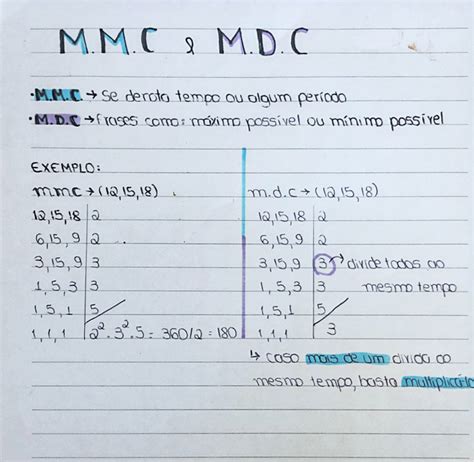 M.M.C & M.D.C
·M.M.C → Se denota tempo ou algum período
·M.D.C → frases como: máximo possível ou mínimo possível
EXEMPLO:
mmc → (12,15,18)
12,15,18 2
6,15,9 2
3,15,9 3
1,5,3 3
1,5,1 5
1,1,1 2².3².5 = 360/2 = 180
m.d.c → (12,15,18)
12,15,18 2
6,15,9 2
3,15,9 3 → divide todos ao
1,5,3 3 mesmo tempo
1,5,1 5
1,1,1 3
↳ caso mais de um divida ao
mesmo tempo, basta multiplicá-lo